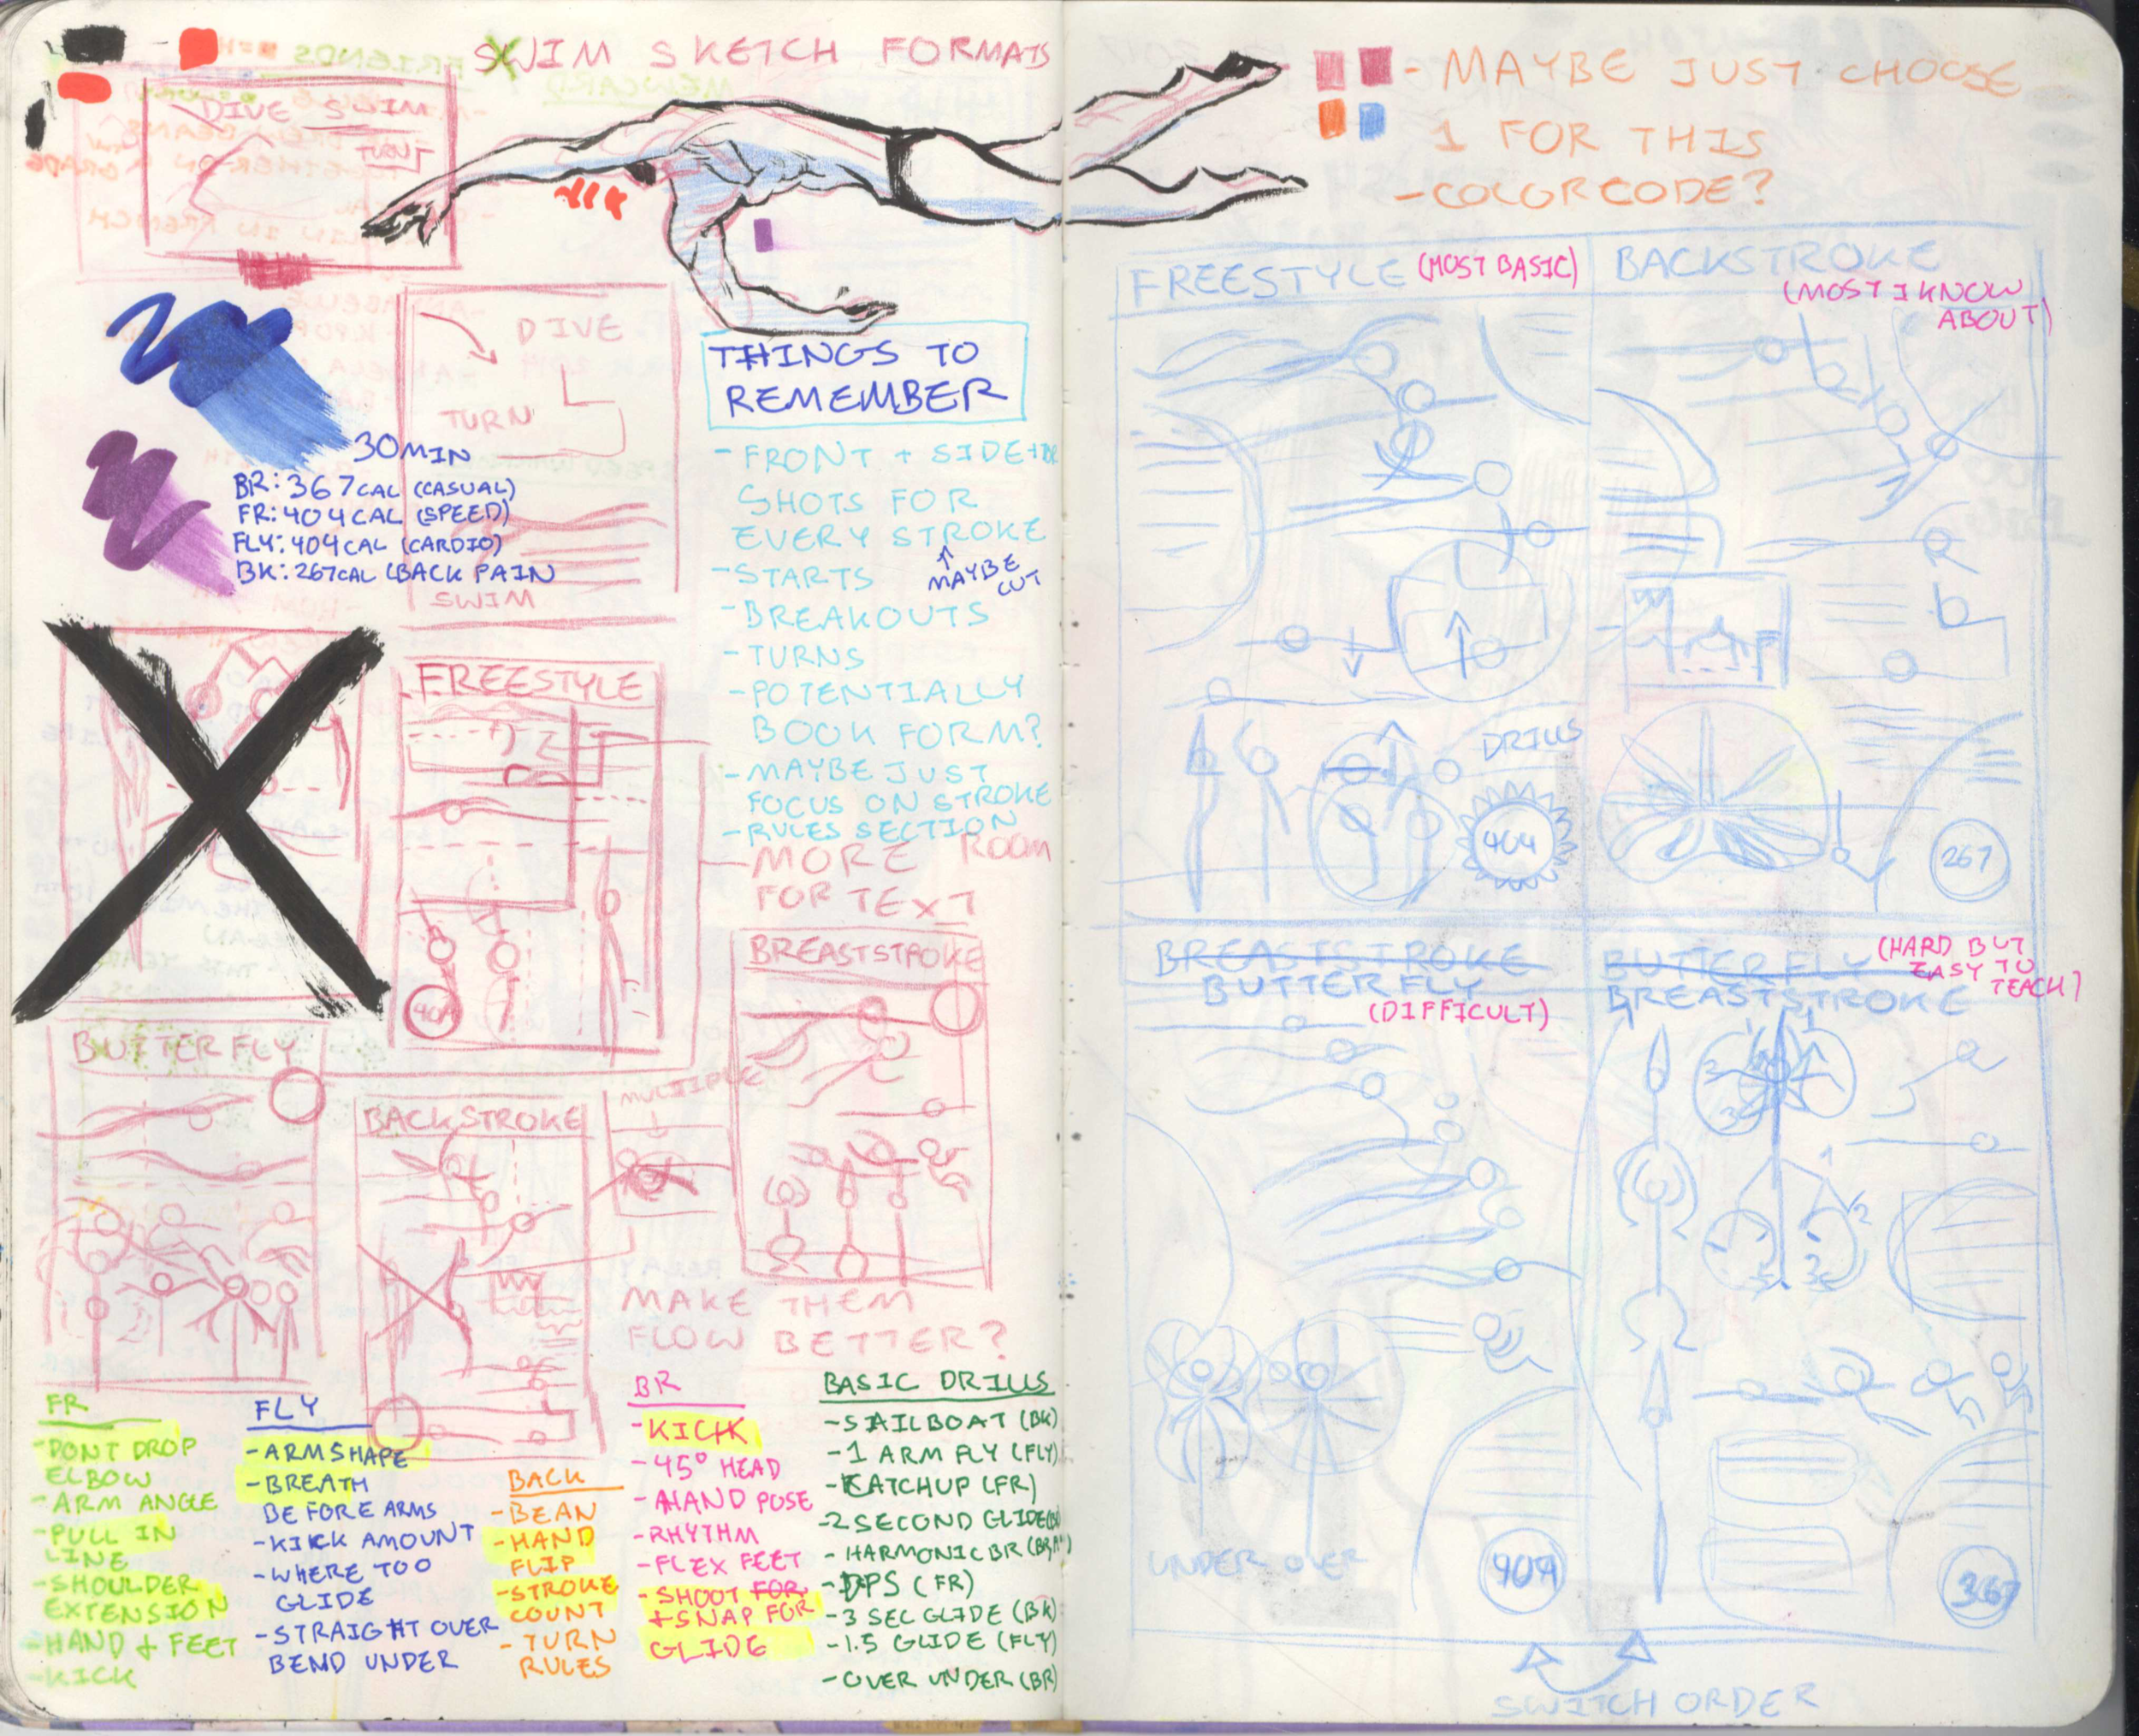 SWIM SKETCH FORMATS
DIVE SWIM
TURN
DIVE
TURN
SWIM
30MIN
BR: 367CAL (CASUAL)
FR: 404CAL (SPEED)
FLY: 404CAL (CARDIO)
BK: 267CAL (BACK PAIN
THINGS TO
REMEMBER
- FRONT + SIDE +
SHOTS FOR
EVERY STROKE
↑
MAYBE
CUT
- STARTS
- BREAKOUTS
- TURNS
- POTENTIALLY
BOOK FORM?
- MAYBE JUST
FOCUS ON STROKE
- RULES SECTION
- MORE ROOM
FOR TEXT
FREESTYLE
404
BREASTSTROKE
BUTTERFLY
BACKSTROKE
MULTIPLE
MAKE THEM
FLOW BETTER?
FR
- DONT DROP
ELBOW
- ARM ANGLE
- PULL IN
LINE
- SHOULDER
EXTENSION
- HAND & FEET
- KICK
FLY
- ARM SHAPE
- BREATH
BEFORE ARMS
- KICK AMOUNT
- WHERE TOO
GLIDE
- STRAIGHT OVER
BEND UNDER
BACK
- BEAN
- HAND
FLIP
- STROKE
COUNT
- TURN
RULES
BR
- KICK
- 45° HEAD
- HAND POSE
- RHYTHM
- FLEX FEET
- SHOOT FOR
+ SNAP FOR
GLIDE
BASIC DRILLS
- SAILBOAT (BK)
- 1 ARM FLY (FLY)
- KATCHUP (FR)
- 2 SECOND GLIDE
- HARMONIC BR
- DPS (FR)
- 3 SEC GLIDE (BK)
- 1.5 GLIDE (FLY)
- OVER UNDER (BR)
- MAYBE JUST CHOOSE
1 FOR THIS
- COLORCODE?
FREESTYLE (MOST BASIC)
DRILLS
404
BACKSTROKE
(MOST I KNOW
ABOUT)
267
BREASTSTROKE
BUTTERFLY
(DIFFICULT)
UNDER OVER
404
BUTTERFLY (HARD BUT
EASY TO
TEACH)
BREASTSTROKE
1
2
3
1
2
3
367
SWITCH ORDER